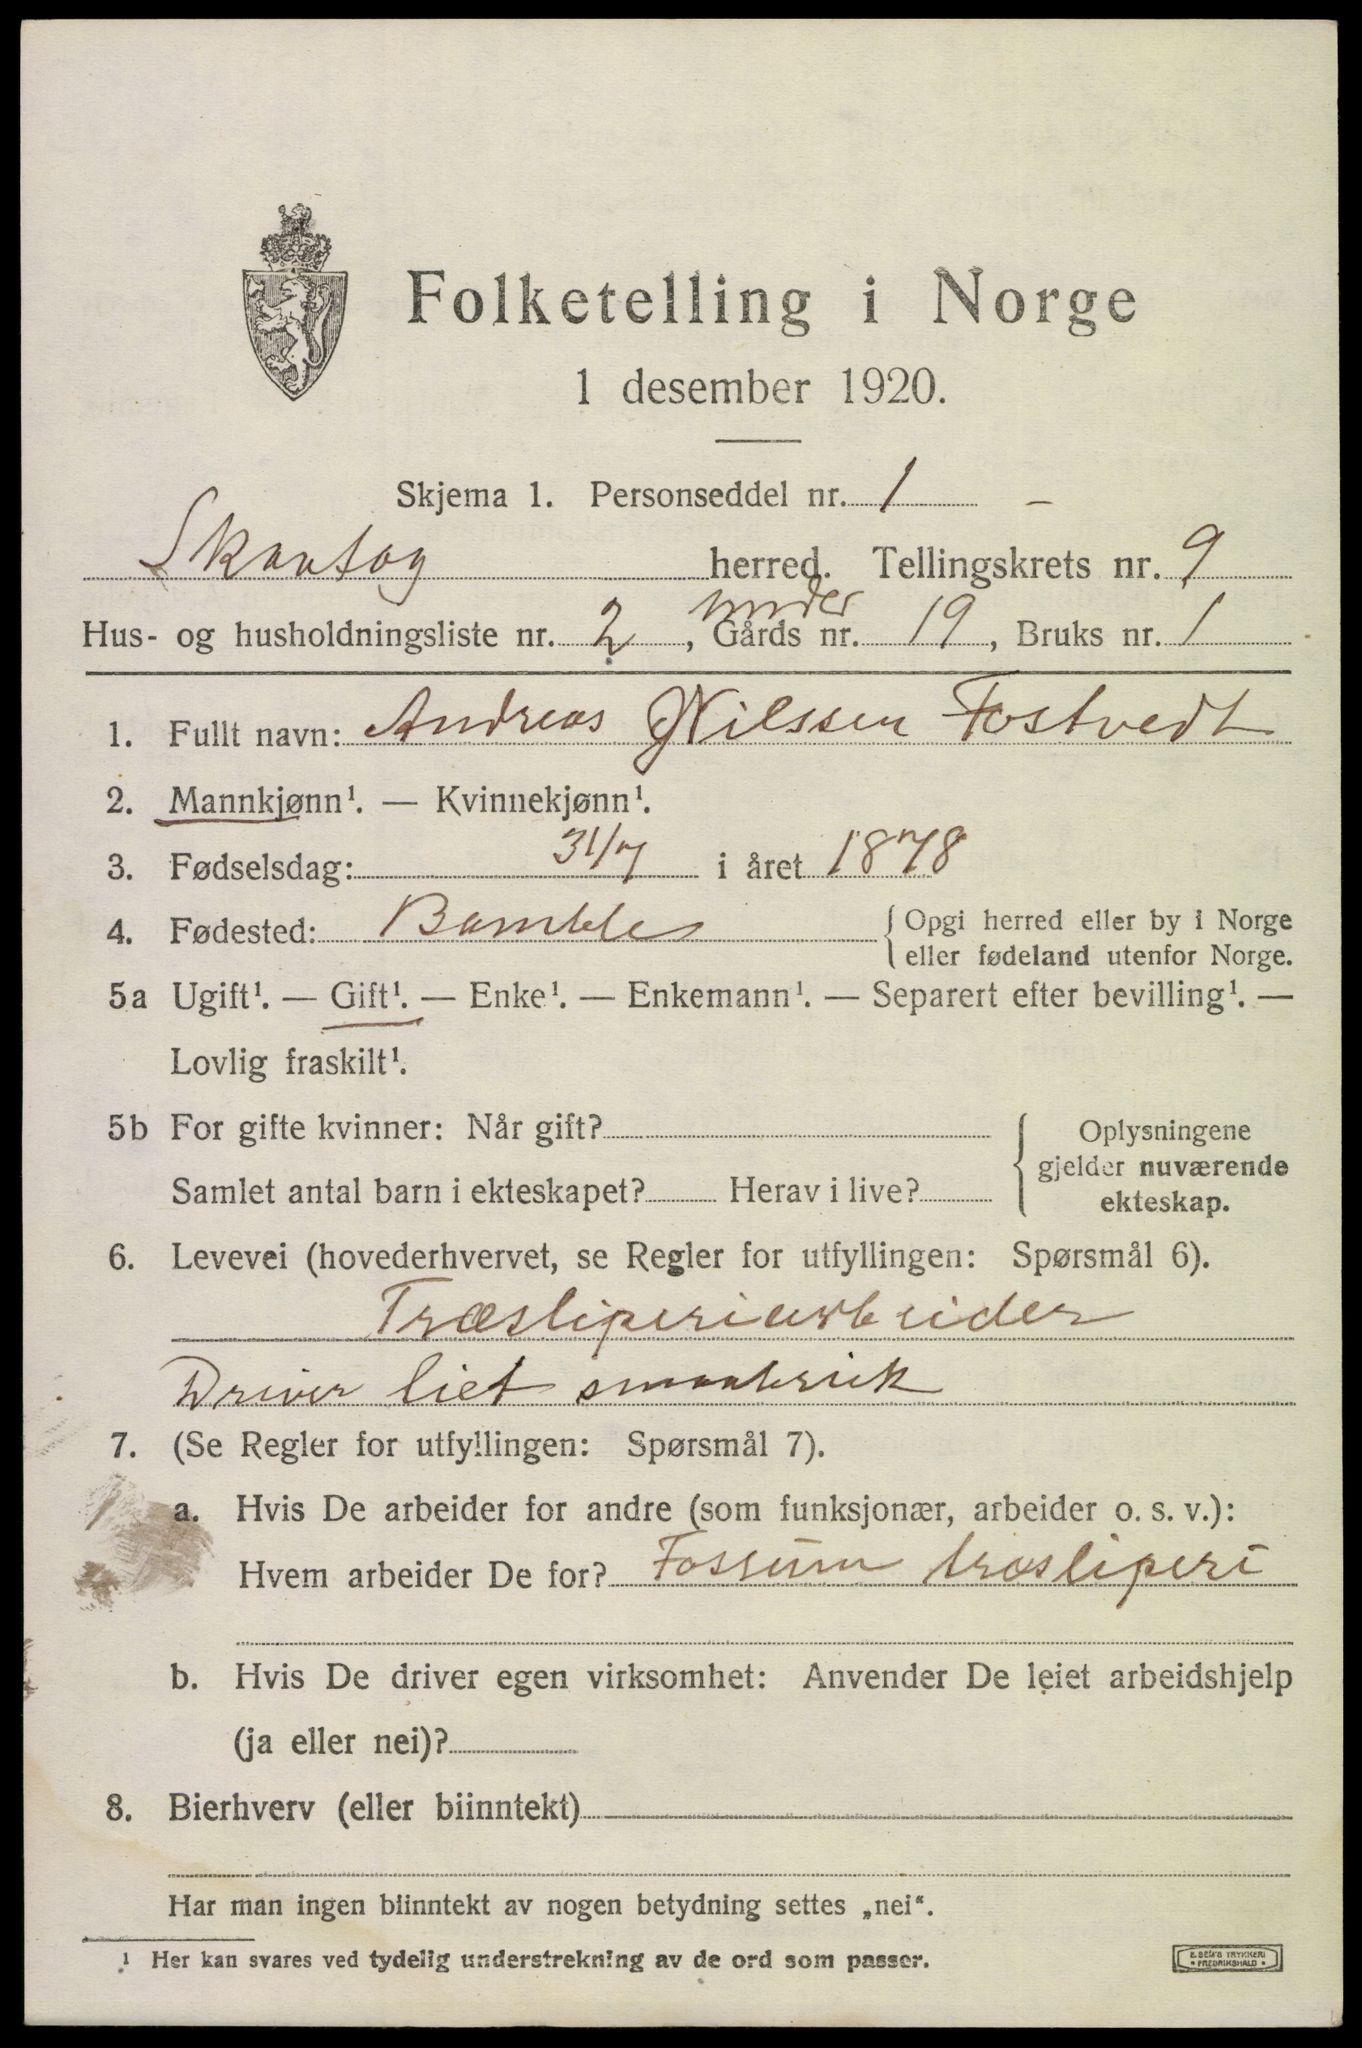 Folketelling i Norge
1 desember 1920.
Skjema 1. Personseddel nr. 1 –
Skaatøy herred. Tellingskrets nr. 9
under
Hus- og husholdningsliste nr. 2, Gårds nr. 19, Bruks nr. 1
1. Fullt navn: Andreas Nilssen Fostvedt
2. Mannkjønn¹. — Kvinnekjønn¹.
3. Fødselsdag: 31/7 i året 1878
4. Fødested: Bamble { Opgi herred eller by i Norge
eller fødeland utenfor Norge.
5a Ugift¹. — Gift¹. — Enke¹. — Enkemann¹. — Separert efter bevilling¹. —
Lovlig fraskilt¹.
5b For gifte kvinner: Når gift?
Samlet antal barn i ekteskapet? Herav i live?
{ Oplysningene
gjelder nuværende
ekteskap.
6. Levevei (hovederhvervet, se Regler for utfyllingen: Spørsmål 6).
Træsliperiarbeider
Driver liet smaabruk
7. (Se Regler for utfyllingen: Spørsmål 7).
a. Hvis De arbeider for andre (som funksjonær, arbeider o. s. v.):
Hvem arbeider De for? Fossum træsliperi
b. Hvis De driver egen virksomhet: Anvender De leiet arbeidshjelp
(ja eller nei)?
8. Bierhverv (eller biinntekt)
Har man ingen biinntekt av nogen betydning settes „nei“.
¹ Her kan svares ved tydelig understrekning av de ord som passer.
E. SEM'S TRYKKERI
• FREDRIKSHALD •